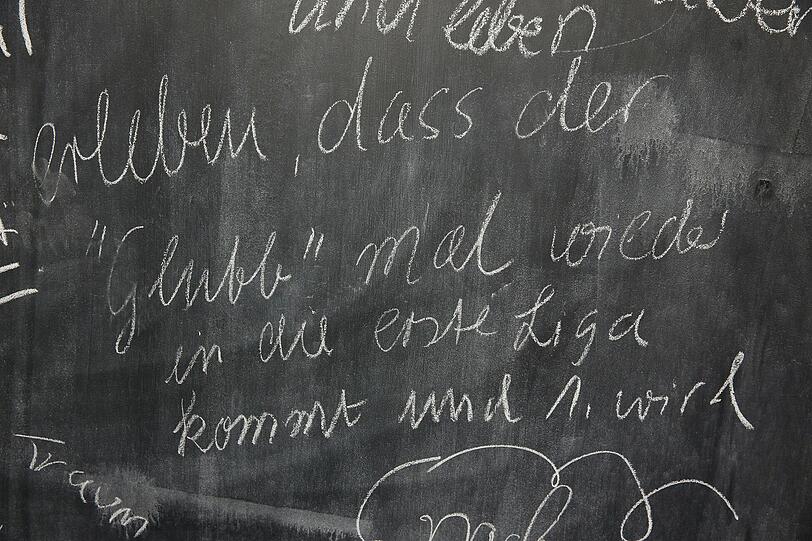 und leben
erleben, dass der
"Glubb" mal wieder
in die erste Liga
kommt und 1. wird
Traum
mal